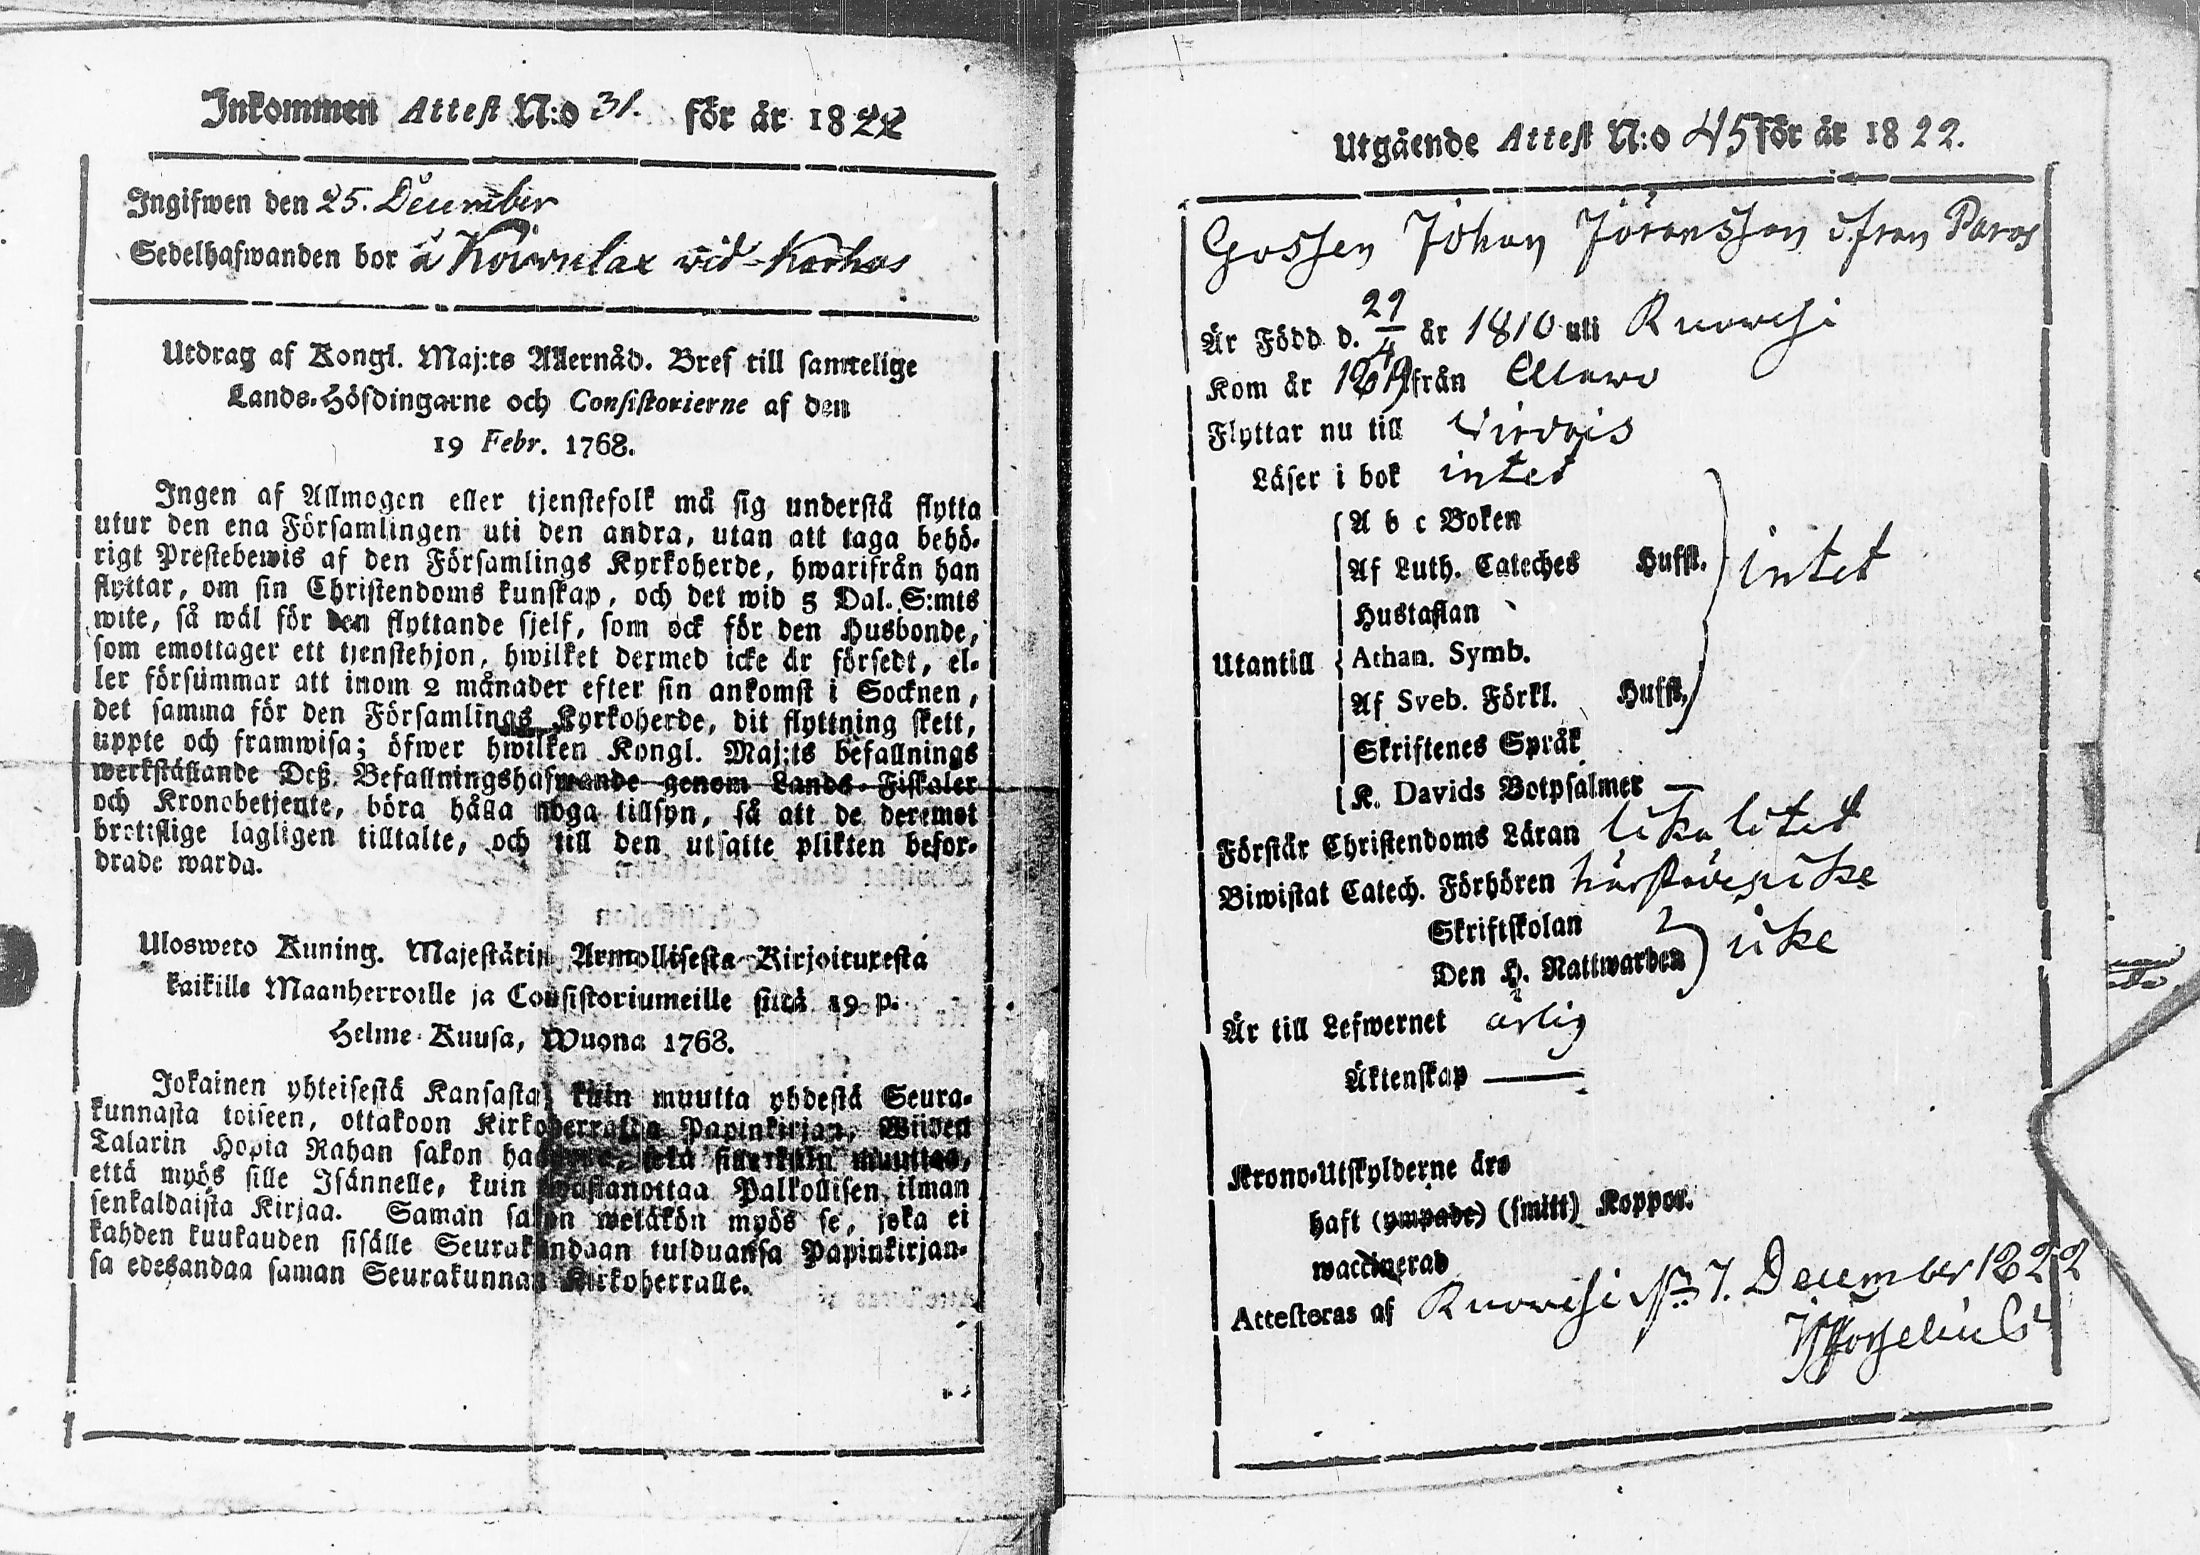 Inkommen Attest N:o 31. för år 1822
Ingifwen den 25. December
Sedelhafwanden bor å wid Karhos
Utdrag af Kongl. Maj:ts Allernåd. Bref till samtelige
Lands-Höfdingarne och Consistorierne af den
19 Febr. 1768.
Ingen af Allmogen eller tjenstefolk må sig understå flytta
utur den ena Församlingen uti den andra, utan att taga behö-
rigt Prestebewis af den Församlings Kyrkoherde, hwarifrån han
flyttar, om sin Christendoms kunskap, och det wid 5 Dal. S:mts
wite, så wäl för den flyttande sjelf, som ock för den Husbonde,
som emottager ett tjenstehjon, hwilket dermed icke är försedt, el-
ler försummar att inom 2 månader efter sin ankomst i Socknen,
det samma för den Församlings Kyrkoherde, dit flyttning skett,
uppte och framwisa; öfwer hwilken Kongl. Maj:ts befallnings
werkställande Deß Befallningshafwande genom Lands-Fiskaler
och Kronobetjente, böra hålla noga tillsyn, så att de deremot
brottslige lagligen tilltalte, och till den utsatte plikten befor-
drade warda.
Ulosweto Kuning. Majestätin Armollisesta Kirjoituxesta
kaikille Maanherroille ja Consistoriumeille siitä 19 p.
Helme-Kuusa, Wuona 1768.
Jokainen yhteisestä Kansasta, kuin muutta yhdestä Seura-
kunnasta toiseen, ottakoon Kirkoherralta Papinkirjan, Wiiden
Talarin Hopia Rahan sakon sekä sillekuin muuttaa,
että myös sille Isännelle, kuin Palkollisen ilman
senkaldaista Kirjaa. Saman sakon wetäkön myös se, joka ei
kahden kuukauden sisälle Seurakundaan tulduansa Papinkirjan-
sa edesandaa saman Seurakunnan Kirkoherralle.
Utgående Attest N:o 45 för år 1822.
Gossen Johan Jöransson ifrån
Är Född d. 29/4 år 1810 uti Ruowesi
Kom år 1819 från
Flyttar nu till Virdois
Läser i bok intet
A b c Boken
Af Luth. Cateches Hufst. intet
Hustaflan
Utantill Athan. Symb.
Af Sveb. Förkl. Hufst.
Skriftenes Språk
K. Davids Botpsalmer —
Förstår Christendoms Läran lika litet
Biwistat Catech. Förhören
Skriftskolan
Den H. Nattwarden icke
Är till Lefwernet ärlig
Äktenskap —
Krono-Utskylderne äro
haft (ympade) (smitt) Koppor.
waccinerad
Attesteras af Ruowesi 7. December 1822